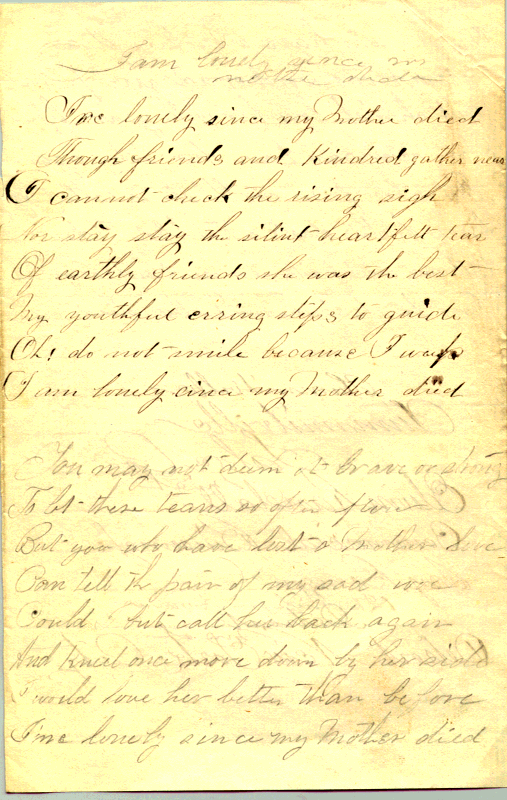 I am lonely since m
mother dided
I'me lonely since my Mother died
Though friends and Kindred gather near
I cannot check the rising sigh
Nor stay stay the silint heartfelt tear
Of earthly friends she was the best
My youthful erring steps to guide
Oh! do not smile because I weep
I am lonely cince my Mother died
You may not deem it brave or strong
To let these tears so often flow
But you who have lost a Mother love
Can tell th pain of my sad woe
Could but call her back again
And Kneel once more down by her side
I would love her better than before
I'me lonely since my Mother died